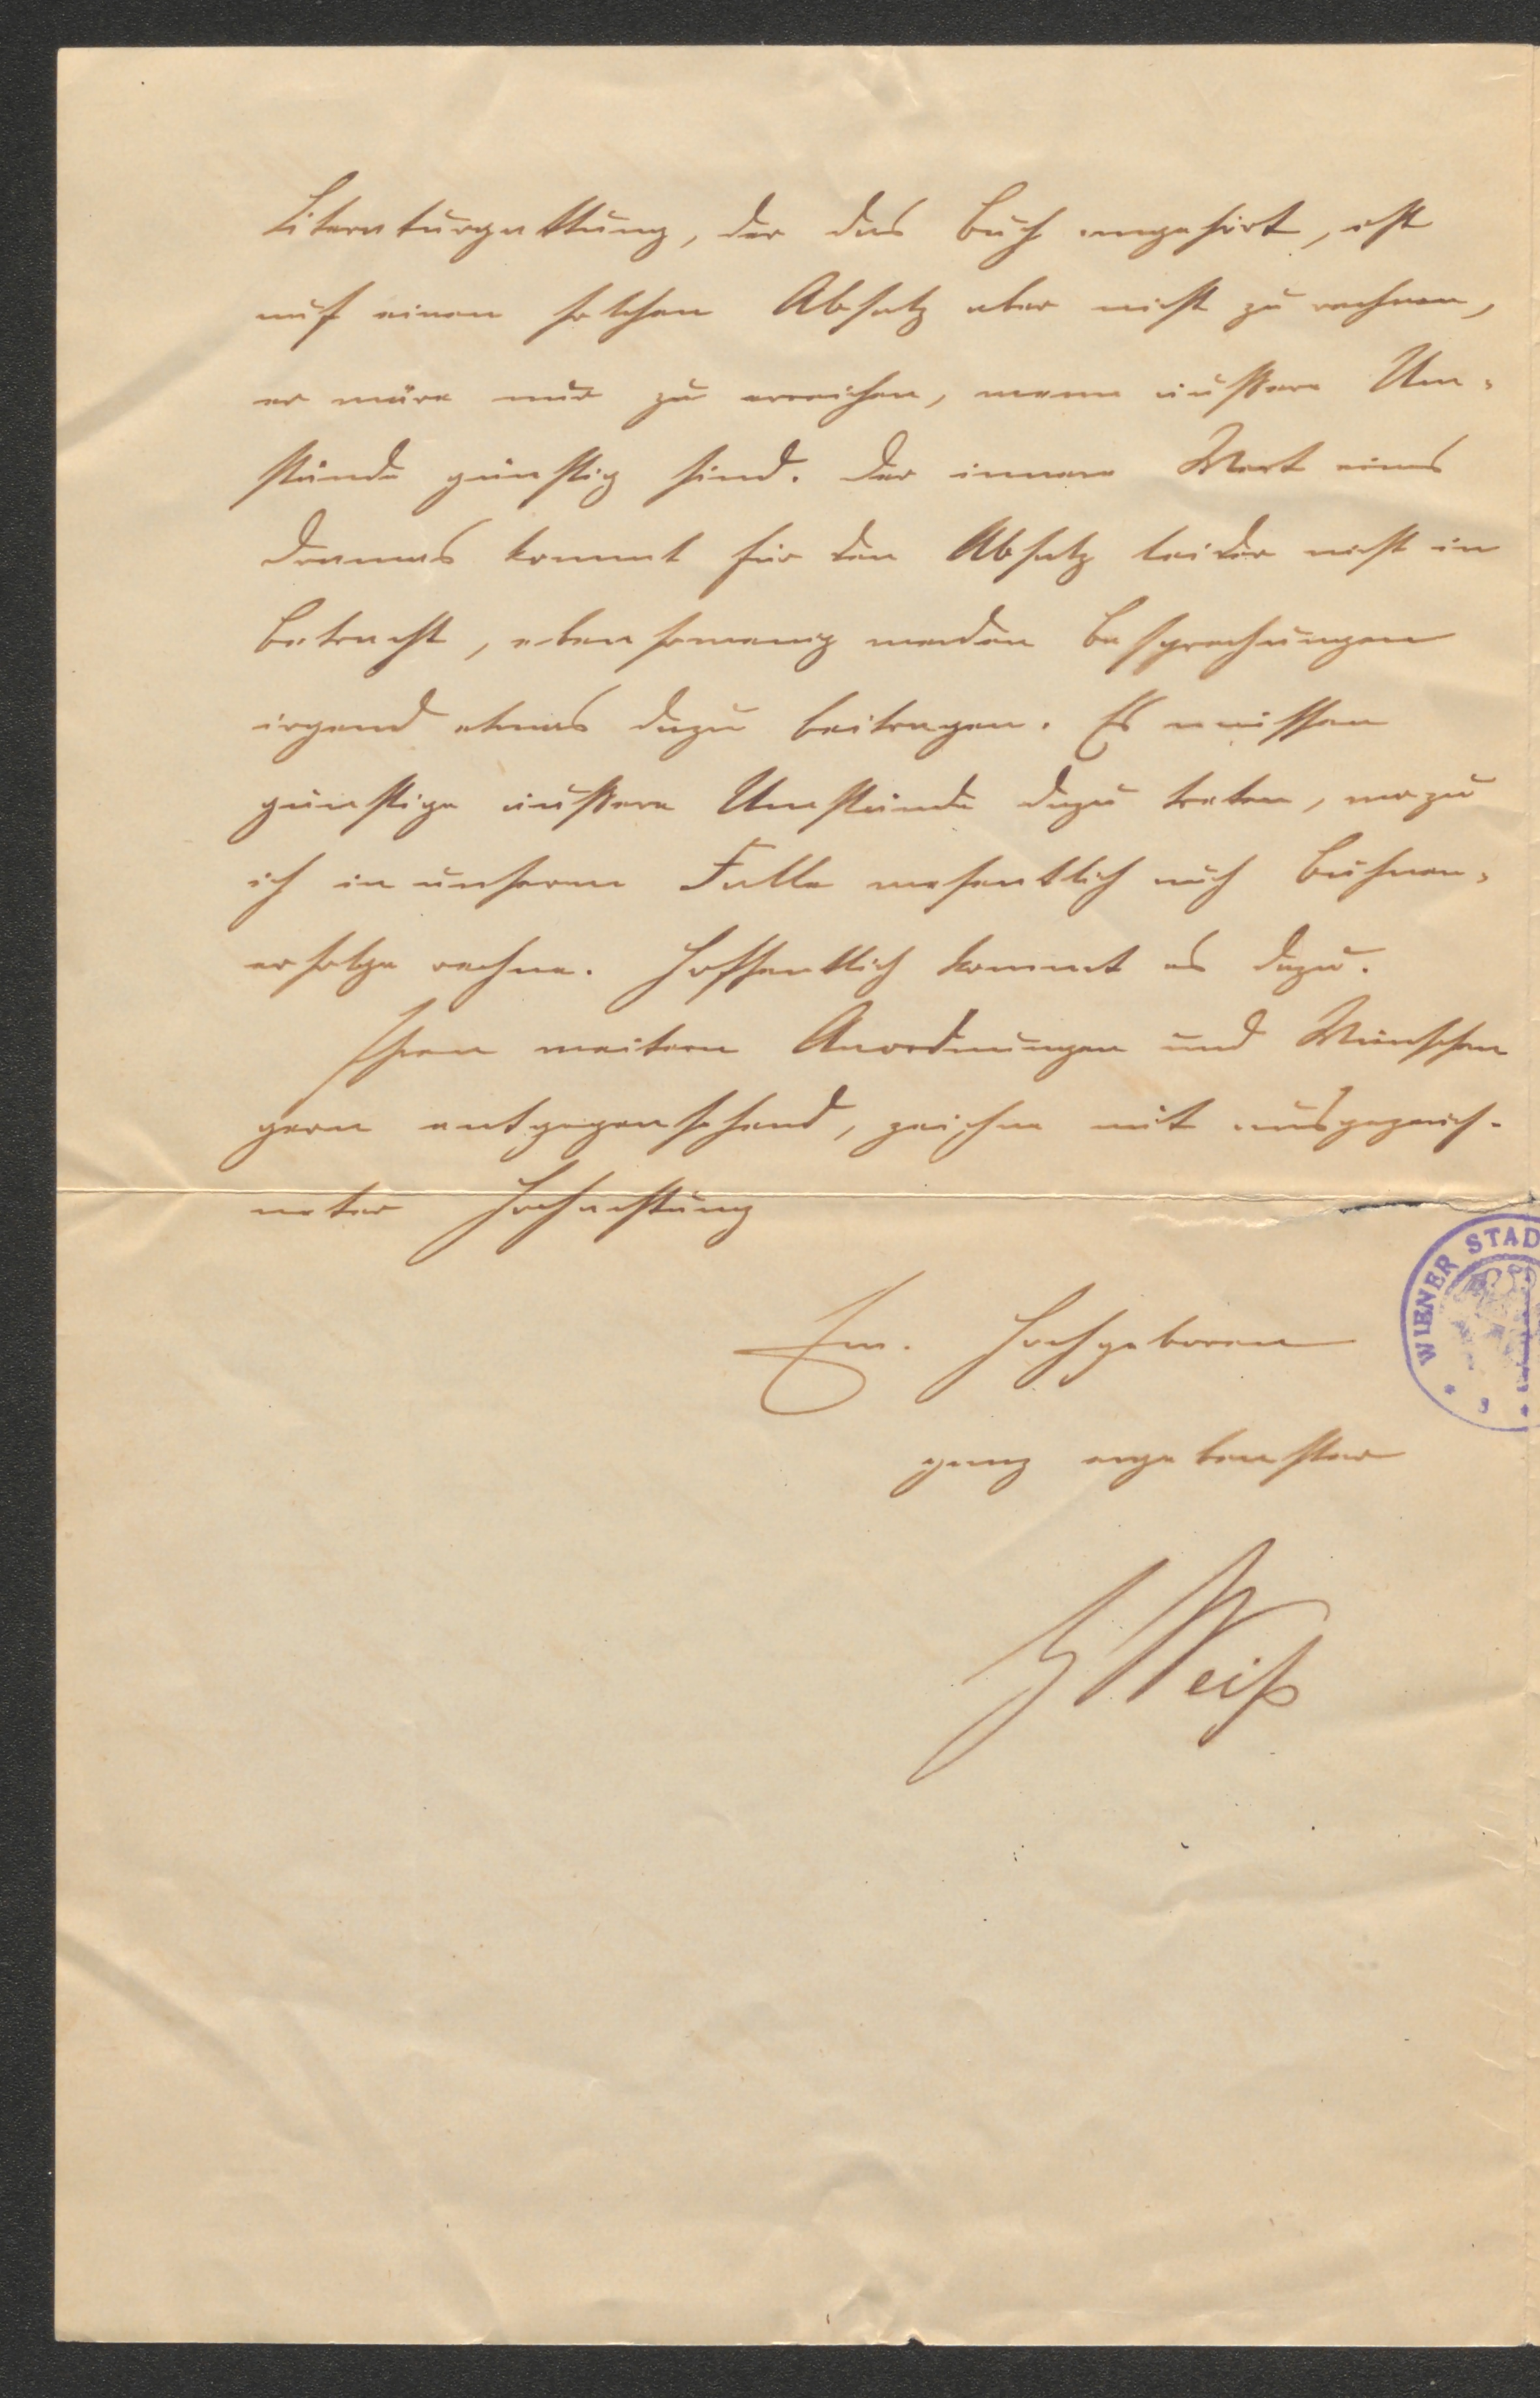 Literaturgattung, der das Buch angehört, ist
auf einen solchen Absatz aber nicht zu rechnen,
er wäre nur zu erreichen, wenn äußere Um-
stände günstig sind. Der innere Wert eines
Dramas kommt für den Absatz leider nicht in
Betracht, ebensowenig werden Besprechungen
irgend etwas dazu beitragen. Es müssen
günstige äußere Umstände dazu treten, wozu
ich in unserem Falle wesentlich auch Bühnen-
erfolge rechne. Hoffentlich kommt es dazu.
Ihren weitern Anordnungen und Wünschen
gern entgegensehend, zeichne mit ausgezeich-
neter Hochachtung
Ew. Hochgeboren
ganz ergebenster
Weiß
WIENER STAD